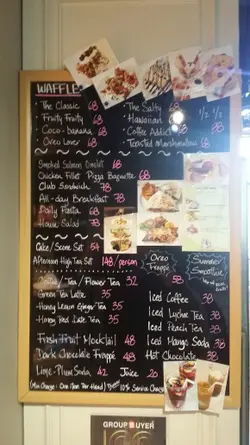 WAFFLE
The Classic 68
Fruity Fruity 68
Coco-banana 68
Oreo Lover 68
The Salty 68
Hawaiian 68
Coffee Addict 68
Toasted Marshmallow 68
1/2 1/2
Smoked Salmon Omelet 68
Chicken Fillet Pizza Baguette 68
Club Sandwich 78
All-day Breakfast 78
Daily Pasta 68
House Salad 78
Cake/Scone Set 54
Afternoon High Tea Set 148/person
Coffee/Tea/Flower Tea 32
Green Tea Latte 35
Honey Lemon Ginger Tea 35
Honey Red Date Tea 35
Fresh Fruit Mocktail 48
Dark Chocolate Frappé 48
Lime-Plum Soda 42 Juice 20
Oreo
Frappé
58
Summer
Smoothie
Iced Coffee 38
Iced Lychee Tea 38
Iced Peach Tea 38
Iced Mango Soda 38
Hot Chocolate 38
(Min Charge: One Item Per Head) 10% Service Charge
GROUP BUYER